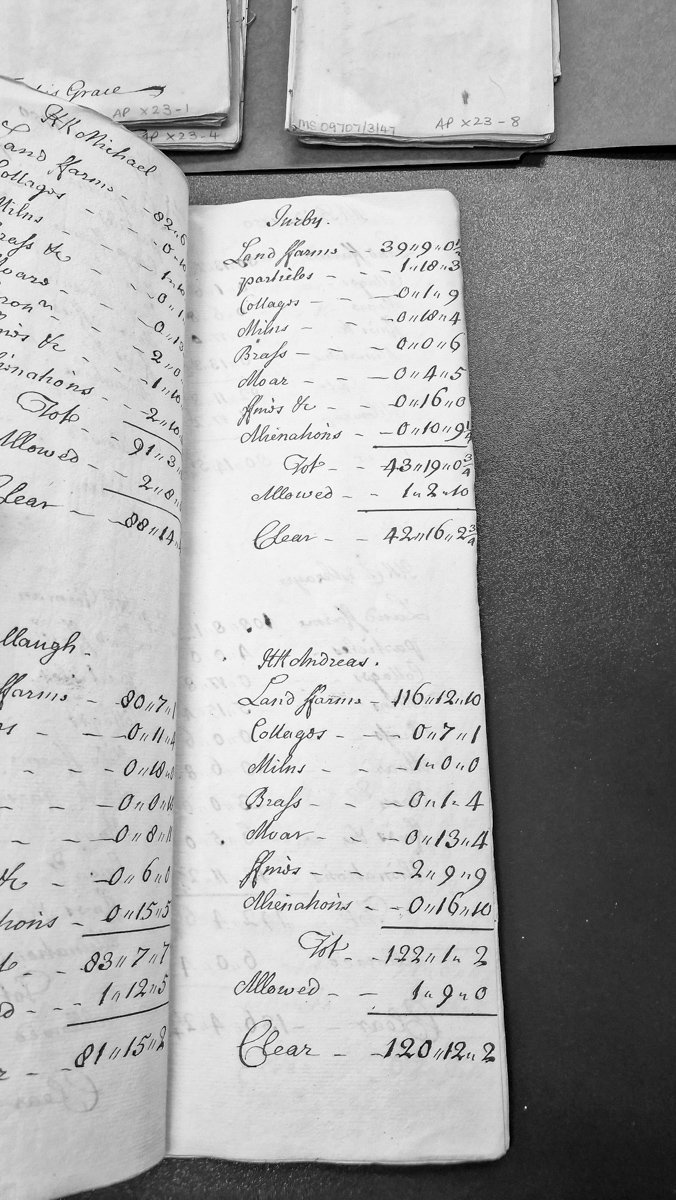 is Grace
AP X23-1
AP X23-4
MS 09707/3/47
AP X23-8
KK Michael
Land ffarms - - 82,,6
Cottages - - 0
Milns - -
Brass &c - -
Moars - - 0,,1
- - 0,,13
&c - - 2,,0
- - 1,,10
Alienations - 2,,10
Tot - - 91,,3
Allowed - - 2,,8
Clear - 88,,14
llaugh.
ffarms - - 80,,7,,1
- - 0,,11,,4
- - 0,,18,,0
- - 0,,0
- - 0,,8
&c - - 0,,6,,0
hons - 0,,15,,5
- - 83,,7,,7
- - 1,,12,,5
- - 81,,15,,2
Jurby.
Land ffarms - 39,,9,,0½
particles - - 1,,18,,3
Cottages - - 0,,1,,9
Milns - - 0,,18,,4
Brass - - 0,,0,,6
Moar - - 0,,4,,5
ffines &c - - 0,,16,,0
Alienations - 0,,10,,9¼
Tot - - 43,,19,,0¾
Allowed - - 1,,2,,10
Clear - - 42,,16,,2¾
KK Andreas.
Land ffarms - 116,,12,,10
Cottages - - 0,,7,,1
Milns - - 1,,0,,0
Brass - - 0,,1,,4
Moar - - 0,,13,,4
ffines - - 2,,9,,9
Alienations - - 0,,16,,10
Tot - - 122,,1,,2
Allowed - - 1,,9,,0
Clear - - 120,,12,,2